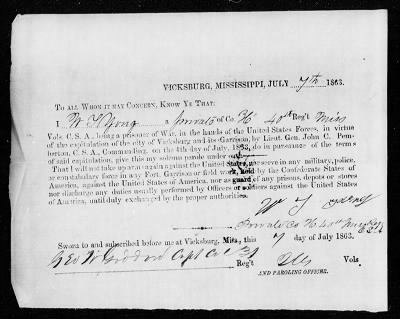 VICKSBURG, MISSISSIPPI, JULY 7th 1863.
TO ALL WHOM IT MAY CONCERN, KNOW YE THAT:
I W a Private of Co. H 40st Reg't Miss
Vols. C. S. A., being a Prisoner of War, in the hands of the United States Forces, in virtue
of the capitulation of the city of Vicksburg and its Garrison, by Lieut. Gen. John C. Pem-
berton, C. S. A., Commanding, on the 4th day of July, 1863, do in pursuance of the terms
of said capitulation, give this my solemn parole under oath—
That I will not take up arms again against the United States, nor serve in any military, police,
or constabulary force in any Fort, Garrison or field work, held by the Confederate States of
America, against the United States of America, nor as guard of any prisons, depots or stores
nor discharge any duties usually performed by Officers or soldiers against the United States
of America, until duly exchanged by the proper authorities.
W
Private Co H 40st Miss Reg
Sworn to and subscribed before me at Vicksburg, Miss., this 7 day of July 1863.
Geo W Capt Co
Reg't Ills Vols
AND PAROLING OFFICER.